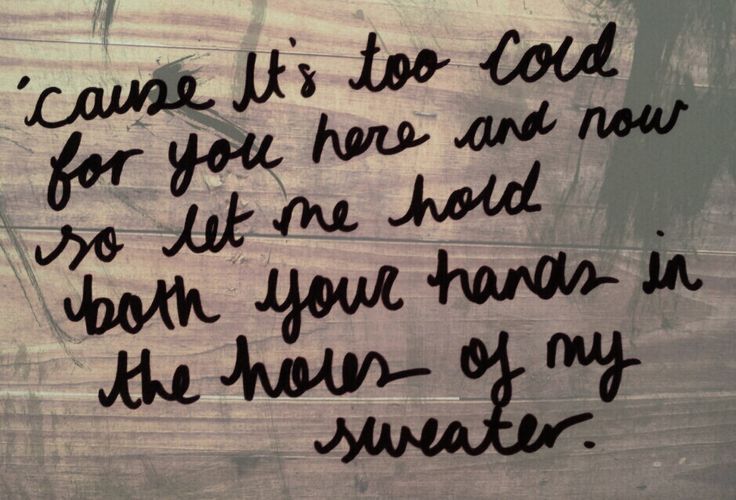 'cause It's too Cold
for you here and now
so let me hold
both your hands in
the holes of my
sweater.